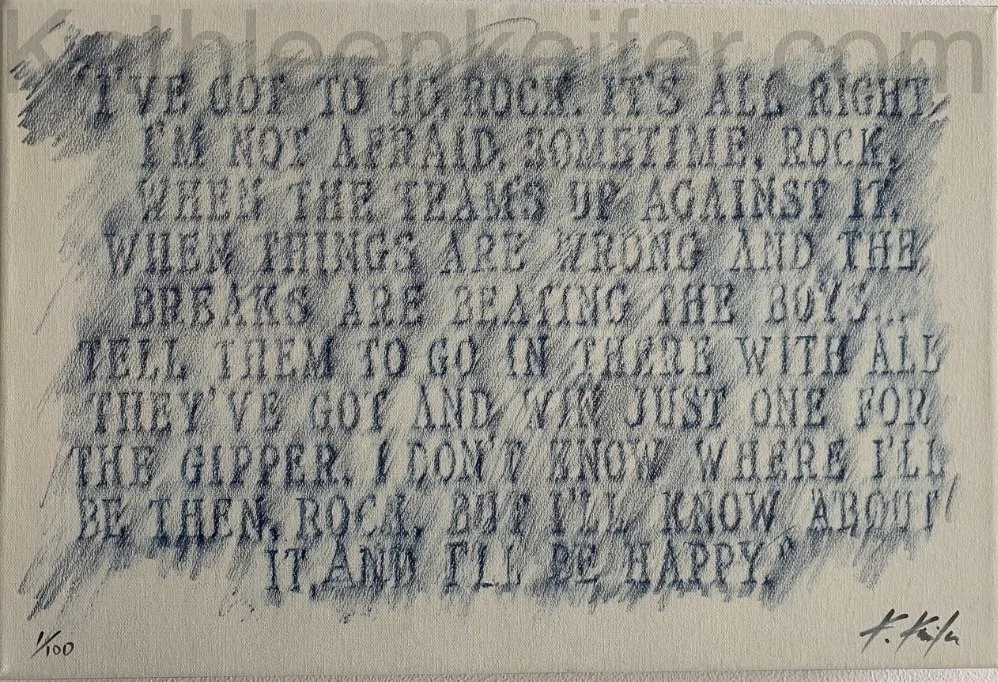 Kathleenkeifer.com
"I'VE GOT TO GO, ROCK. IT'S ALL RIGHT.
I'M NOT AFRAID. SOMETIME, ROCK,
WHEN THE TEAM'S UP AGAINST IT,
WHEN THINGS ARE WRONG AND THE
BREAKS ARE BEATING THE BOYS...
TELL THEM TO GO IN THERE WITH ALL
THEY'VE GOT AND WIN JUST ONE FOR
THE GIPPER. I DON'T KNOW WHERE I'LL
BE THEN, ROCK, BUT I'LL KNOW ABOUT
IT, AND I'LL BE HAPPY."
1/100
K. Keifer